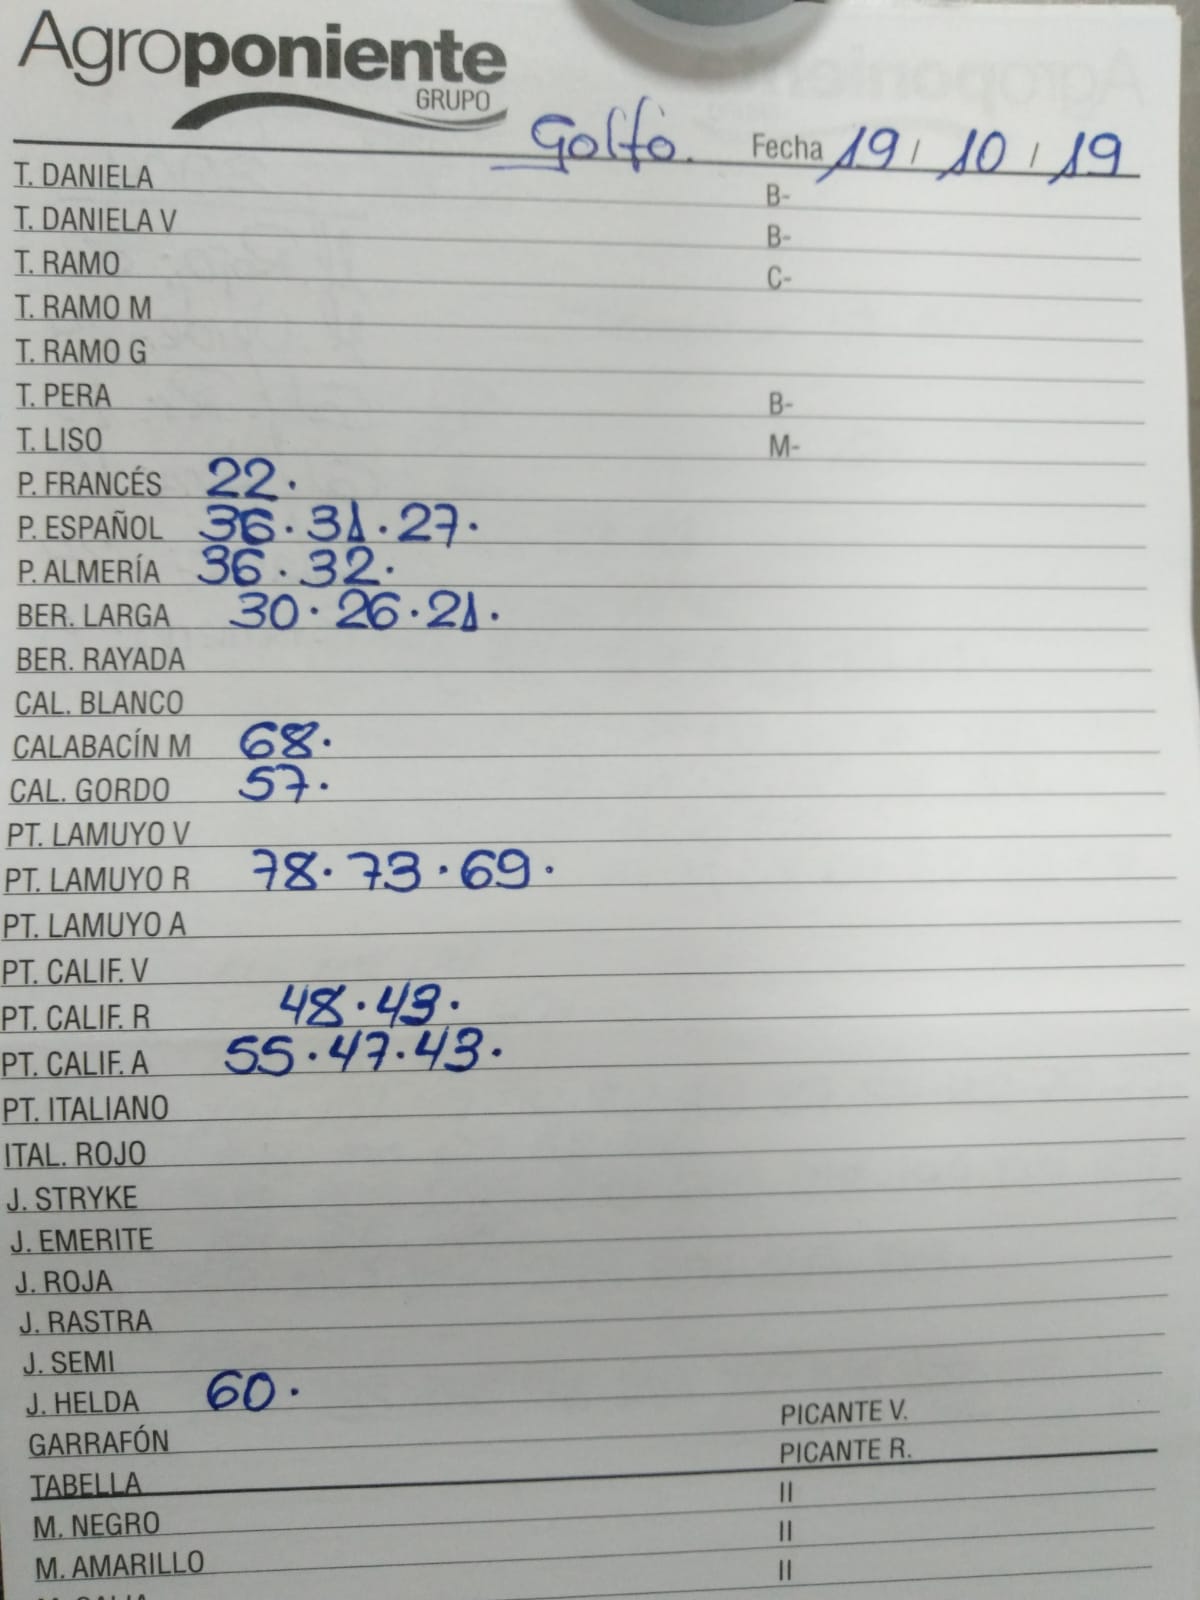 Agroponiente
GRUPO
Golfo. Fecha 19 / 10 / 19
T. DANIELA B-
T. DANIELA V B-
T. RAMO C-
T. RAMO M
T. RAMO G
T. PERA B-
T. LISO M-
P. FRANCÉS 22.
P. ESPAÑOL 36 . 31 . 27 .
P. ALMERÍA 36 . 32 .
BER. LARGA 30 . 26 . 21 .
BER. RAYADA
CAL. BLANCO
CALABACÍN M 68 .
CAL. GORDO 57 .
PT. LAMUYO V
PT. LAMUYO R 78 . 73 . 69 .
PT. LAMUYO A
PT. CALIF. V
PT. CALIF. R 48 . 43 .
PT. CALIF. A 55 . 47 . 43 .
PT. ITALIANO
ITAL. ROJO
J. STRYKE
J. EMERITE
J. ROJA
J. RASTRA
J. SEMI
J. HELDA 60 .
GARRAFÓN PICANTE V.
TABELLA PICANTE R.
M. NEGRO II
M. AMARILLO II
II